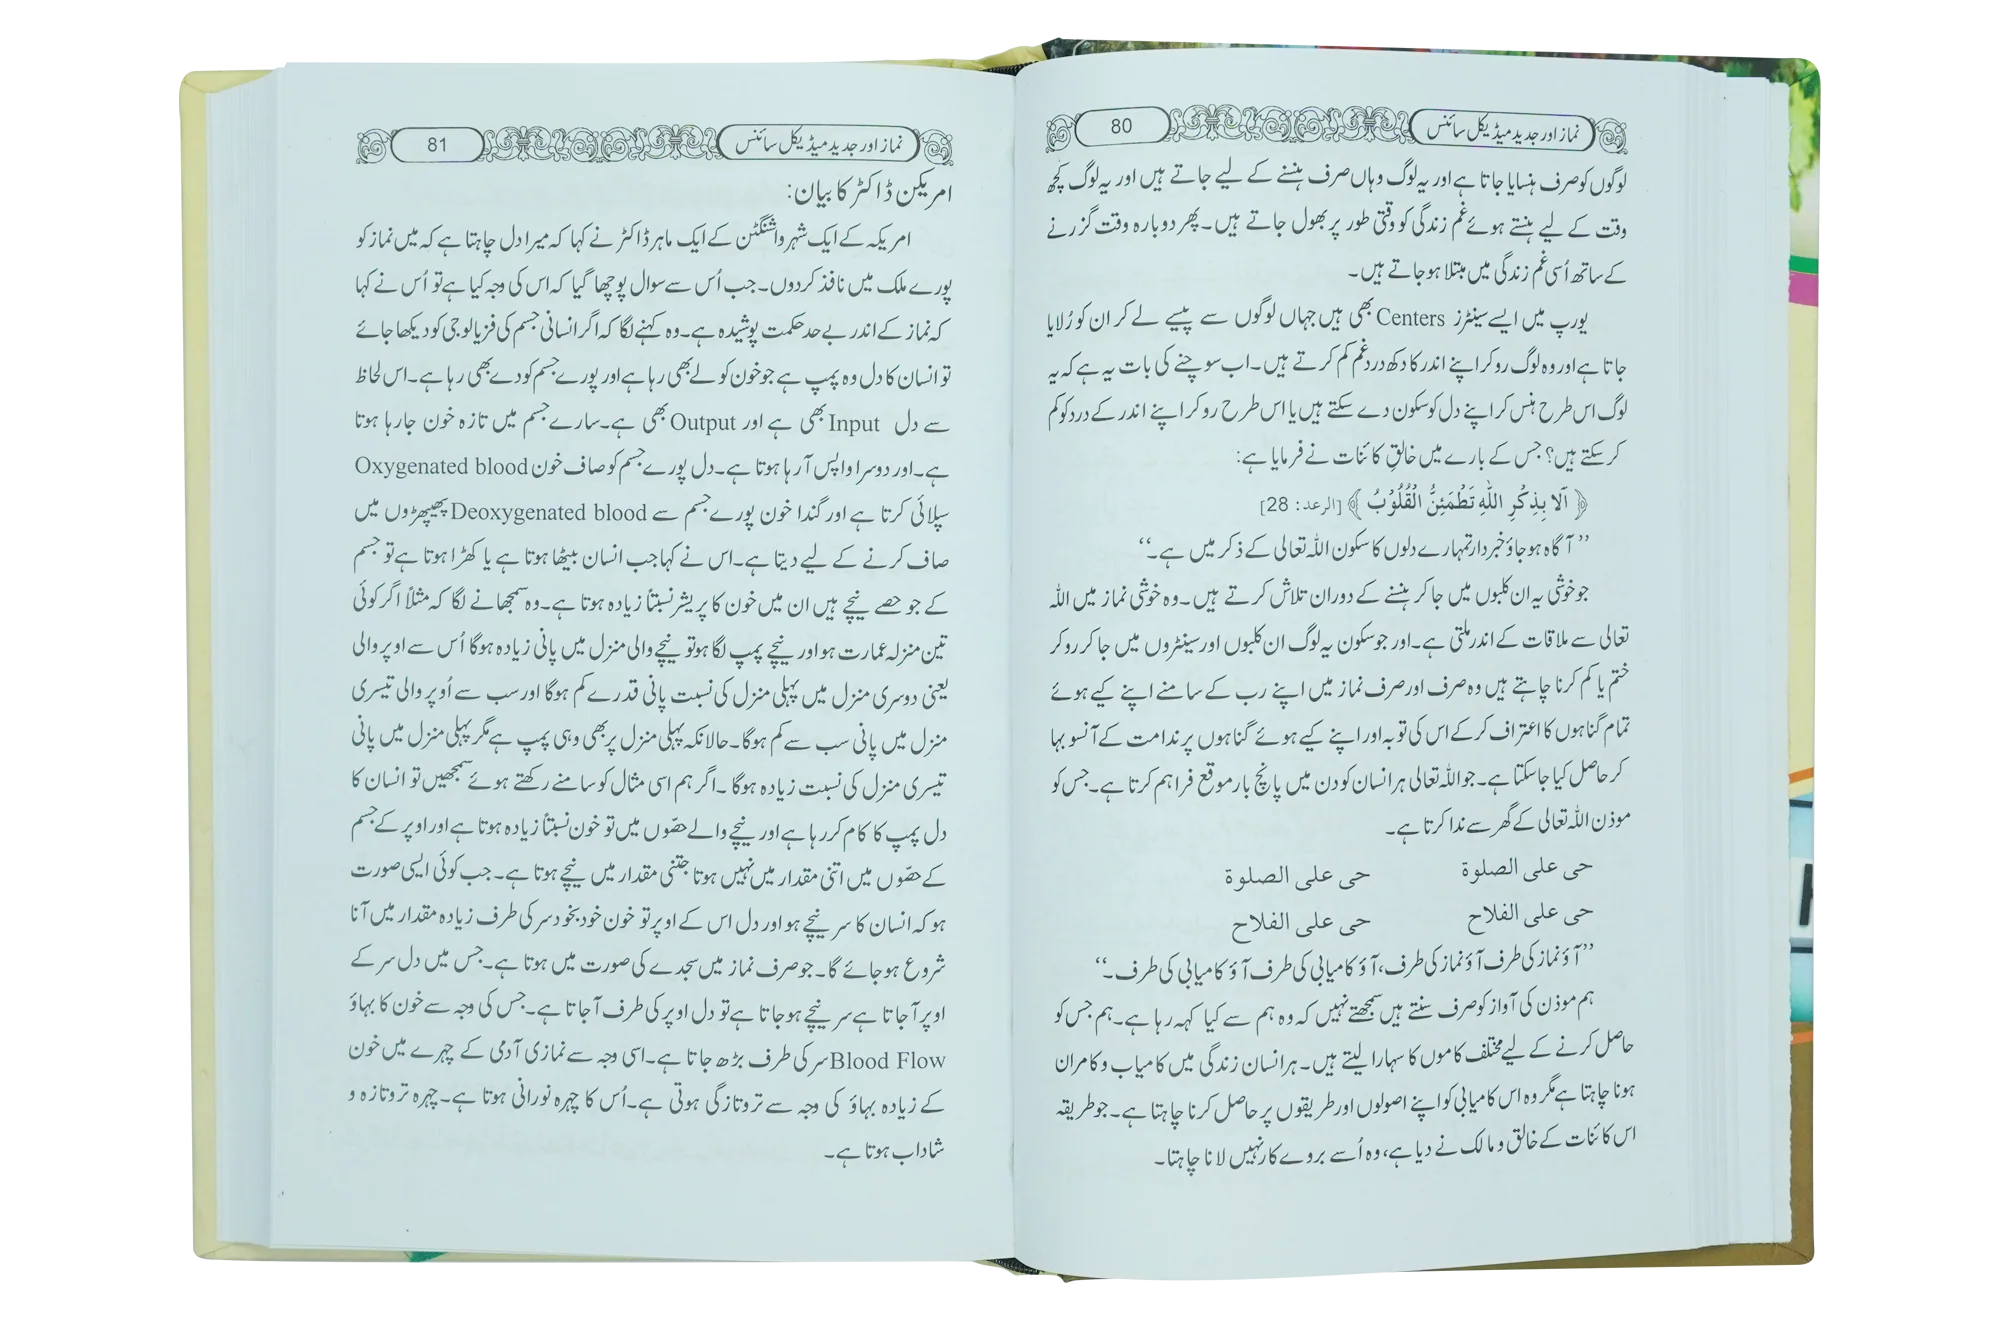 نماز اور جدید میڈیکل سائنس
80
لوگوں کو صرف ہنسایا جاتا ہے اور یہ لوگ وہاں صرف ہنسنے کے لیے جاتے ہیں اور یہ لوگ کچھ
وقت کے لیے ہنستے ہوئے غم زندگی کو وقتی طور پر بھول جاتے ہیں۔ پھر دوبارہ وقت گزرنے
کے ساتھ اُسی غم زندگی میں مبتلا ہو جاتے ہیں۔
یورپ میں ایسے سینٹرز Centers بھی ہیں جہاں لوگوں سے پیسے لے کر ان کو رُلایا
جاتا ہے اور وہ لوگ رو کر اپنے اندر کا دکھ درد غم کم کرتے ہیں۔ اب سوچنے کی بات یہ ہے کہ یہ
لوگ اس طرح ہنس کر اپنے دل کو سکون دے سکتے ہیں یا اس طرح رو کر اپنے اندر کے درد کو کم
کر سکتے ہیں؟ جس کے بارے میں خالقِ کائنات نے فرمایا ہے:
﴿ اَلَا بِذِكْرِ اللّٰهِ تَطْمَئِنُّ الْقُلُوْبُ ﴾ [الرعد: 28]
’’آگاہ ہو جاؤ خبردار تمہارے دلوں کا سکون اللہ تعالی کے ذکر میں ہے۔‘‘
جو خوشی یہ ان کلبوں میں جا کر ہنسنے کے دوران تلاش کرتے ہیں۔ وہ خوشی نماز میں اللہ
تعالی سے ملاقات کے اندر ملتی ہے۔ اور جو سکون یہ لوگ ان کلبوں اور سینٹروں میں جا کر رو کر
ختم یا کم کرنا چاہتے ہیں وہ صرف اور صرف نماز میں اپنے رب کے سامنے اپنے کیے ہوئے
تمام گناہوں کا اعتراف کر کے اس کی توبہ اور اپنے کیے ہوئے گناہوں پر ندامت کے آنسو بہا
کر حاصل کیا جا سکتا ہے۔ جو اللہ تعالی ہر انسان کو دن میں پانچ بار موقع فراہم کرتا ہے۔ جس کو
موذن اللہ تعالی کے گھر سے ندا کرتا ہے۔
حی علی الصلوة حی علی الصلوة
حی علی الفلاح حی علی الفلاح
’’آؤ نماز کی طرف آؤ نماز کی طرف، آؤ کامیابی کی طرف آؤ کامیابی کی طرف۔‘‘
ہم موذن کی آواز کو صرف سنتے ہیں سمجھتے نہیں کہ وہ ہم سے کیا کہہ رہا ہے۔ ہم جس کو
حاصل کرنے کے لیے مختلف کاموں کا سہارا لیتے ہیں۔ ہر انسان زندگی میں کامیاب و کامران
ہونا چاہتا ہے مگر وہ اس کامیابی کو اپنے اصولوں اور طریقوں پر حاصل کرنا چاہتا ہے۔ جو طریقہ
اس کائنات کے خالق و مالک نے دیا ہے، وہ اُسے بروے کار نہیں لانا چاہتا۔
نماز اور جدید میڈیکل سائنس
81
امریکن ڈاکٹر کا بیان:
امریکہ کے ایک شہر واشنگٹن کے ایک ماہر ڈاکٹر نے کہا کہ میرا دل چاہتا ہے کہ میں نماز کو
پورے ملک میں نافذ کر دوں۔ جب اُس سے سوال پوچھا گیا کہ اس کی وجہ کیا ہے تو اُس نے کہا
کہ نماز کے اندر بے حد حکمت پوشیدہ ہے۔ وہ کہنے لگا کہ اگر انسانی جسم کی فزیالوجی کو دیکھا جائے
تو انسان کا دل وہ پمپ ہے جو خون کو لے بھی رہا ہے اور پورے جسم کو دے بھی رہا ہے۔ اس لحاظ
سے دل Input بھی ہے اور Output بھی ہے۔ سارے جسم میں تازہ خون جا رہا ہوتا
ہے۔ اور دوسرا واپس آ رہا ہوتا ہے۔ دل پورے جسم کو صاف خون Oxygenated blood
سپلائی کرتا ہے اور گندا خون پورے جسم سے Deoxygenated blood پھیپھڑوں میں
صاف کرنے کے لیے دیتا ہے۔ اس نے کہا جب انسان بیٹھا ہوتا ہے یا کھڑا ہوتا ہے تو جسم
کے جو حصے نیچے ہیں ان میں خون کا پریشر نسبتاً زیادہ ہوتا ہے۔ وہ سمجھانے لگا کہ مثلاً اگر کوئی
تین منزلہ عمارت ہو اور نیچے پمپ لگا ہو تو نیچے والی منزل میں پانی زیادہ ہوگا اُس سے اوپر والی
یعنی دوسری منزل میں پہلی منزل کی نسبت پانی قدرے کم ہوگا اور سب سے اُوپر والی تیسری
منزل میں پانی سب سے کم ہوگا۔ حالانکہ پہلی منزل پر بھی وہی پمپ ہے مگر پہلی منزل میں پانی
تیسری منزل کی نسبت زیادہ ہوگا۔ اگر ہم اسی مثال کو سامنے رکھتے ہوئے سمجھیں تو انسان کا
دل پمپ کا کام کر رہا ہے اور نیچے والے حصّوں میں تو خون نسبتاً زیادہ ہوتا ہے اور اوپر کے جسم
کے حصّوں میں اتنی مقدار میں نہیں ہوتا جتنی مقدار میں نیچے ہوتا ہے۔ جب کوئی ایسی صورت
ہو کہ انسان کا سر نیچے ہو اور دل اس کے اوپر تو خون خود بخود سر کی طرف زیادہ مقدار میں آنا
شروع ہو جائے گا۔ جو صرف نماز میں سجدے کی صورت میں ہوتا ہے۔ جس میں دل سر کے
اوپر آ جاتا ہے سر نیچے ہو جاتا ہے تو دل اوپر کی طرف آ جاتا ہے۔ جس کی وجہ سے خون کا بہاؤ
Blood Flow سر کی طرف بڑھ جاتا ہے۔ اسی وجہ سے نمازی آدمی کے چہرے میں خون
کے زیادہ بہاؤ کی وجہ سے تروتازگی ہوتی ہے۔ اُس کا چہرہ نورانی ہوتا ہے۔ چہرہ تروتازہ و
شاداب ہوتا ہے۔